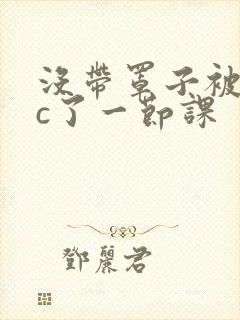 沒帶罩子被
c了一節課
鄧麗君